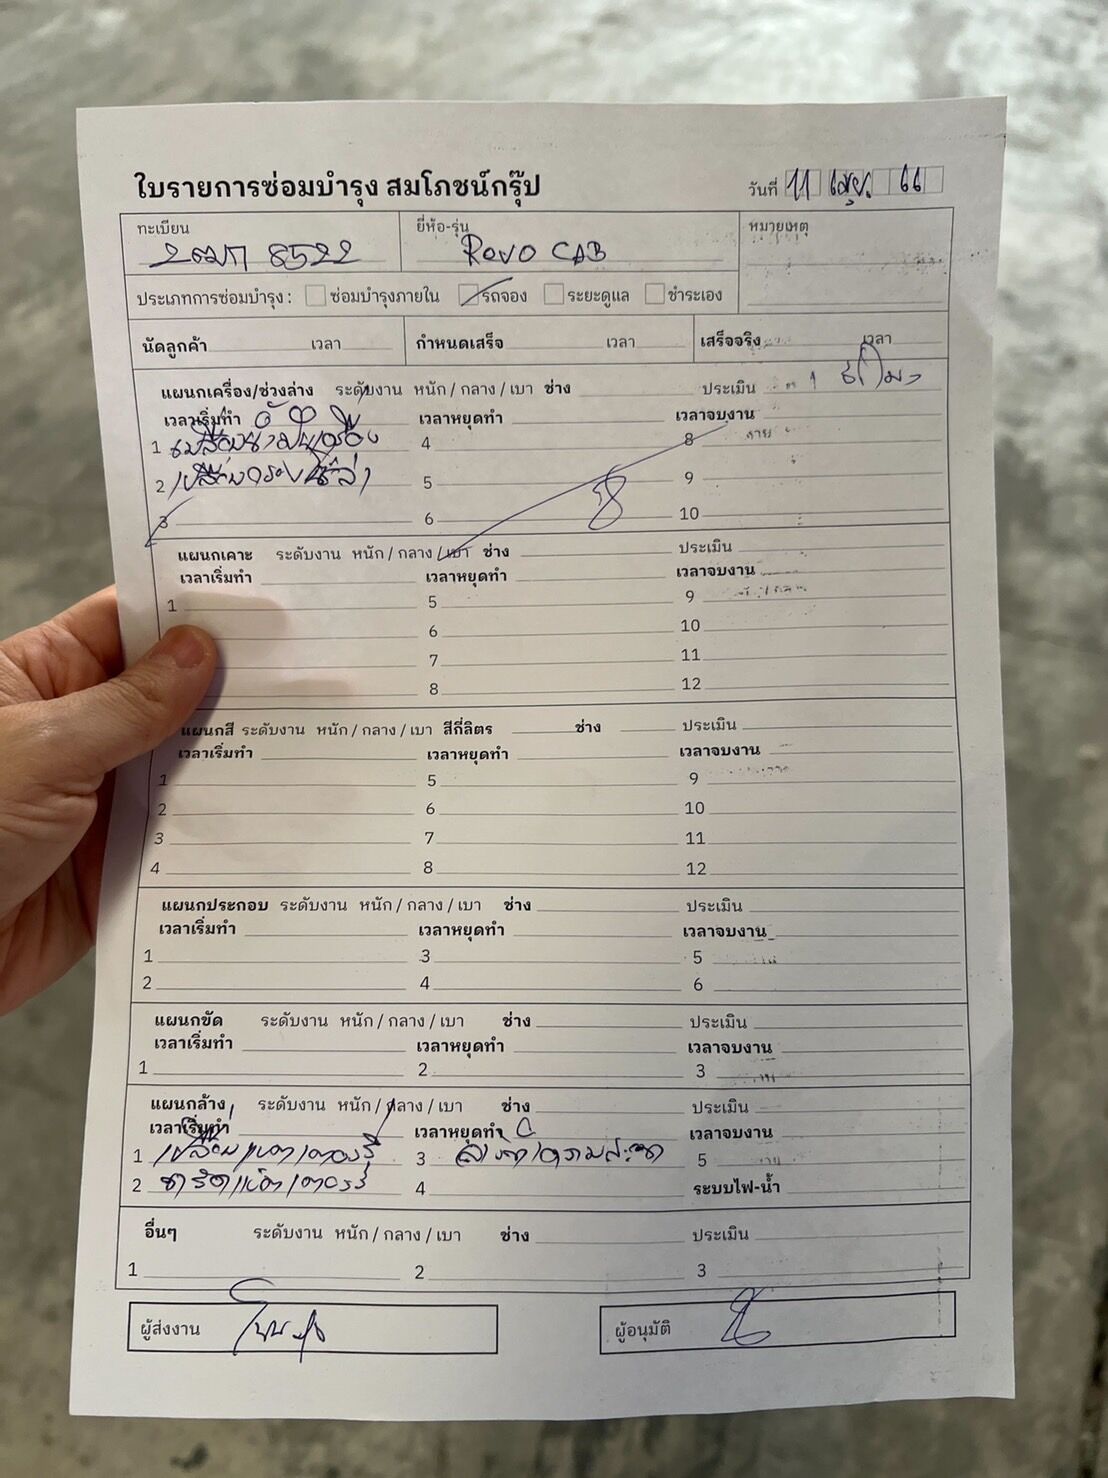 ใบรายการซ่อมบำรุง สมโภชน์กรุ๊ป
วันที่ 11 เมษ 66
ทะเบียน ยี่ห้อ-รุ่น หมายเหตุ
2ฒก 8522 Revo CAB
ประเภทการซ่อมบำรุง : ซ่อมบำรุงภายใน รถจอง ระยะดูแล ชำระเอง
นัดลูกค้า เวลา กำหนดเสร็จ เวลา เสร็จจริง เวลา
แผนกเครื่อง/ช่วงล่าง ระดับงาน หนัก / กลาง / เบา ช่าง ประเมิน 1
เวลาเริ่มทำ เวลาหยุดทำ เวลาจบงาน
1 เปลี่ยนน้ำมันเครื่อง 4 8
2 เปลี่ยน 5 9
3 6 10
แผนกเคาะ ระดับงาน หนัก / กลาง / เบา ช่าง ประเมิน
เวลาเริ่มทำ เวลาหยุดทำ เวลาจบงาน
1 5 9
6 10
7 11
8 12
แผนกสี ระดับงาน หนัก / กลาง / เบา สีกี่ลิตร ช่าง ประเมิน
เวลาเริ่มทำ เวลาหยุดทำ เวลาจบงาน
1 5 9
2 6 10
3 7 11
4 8 12
แผนกประกอบ ระดับงาน หนัก / กลาง / เบา ช่าง ประเมิน
เวลาเริ่มทำ เวลาหยุดทำ เวลาจบงาน
1 3 5
2 4 6
แผนกขัด ระดับงาน หนัก / กลาง / เบา ช่าง ประเมิน
เวลาเริ่มทำ เวลาหยุดทำ เวลาจบงาน
1 2 3
แผนกล้าง ระดับงาน หนัก / กลาง / เบา ช่าง ประเมิน
เวลาเริ่มทำ เวลาหยุดทำ เวลาจบงาน
1 เปลี่ยนแบตเตอรรี่ 3 ล้างทำความสะอาด 5
2 ชาร์ตแบ็ตเตอรรี่ 4 ระบบไฟ-น้ำ
อื่นๆ ระดับงาน หนัก / กลาง / เบา ช่าง ประเมิน
1 2 3
ผู้ส่งงาน ผู้อนุมัติ